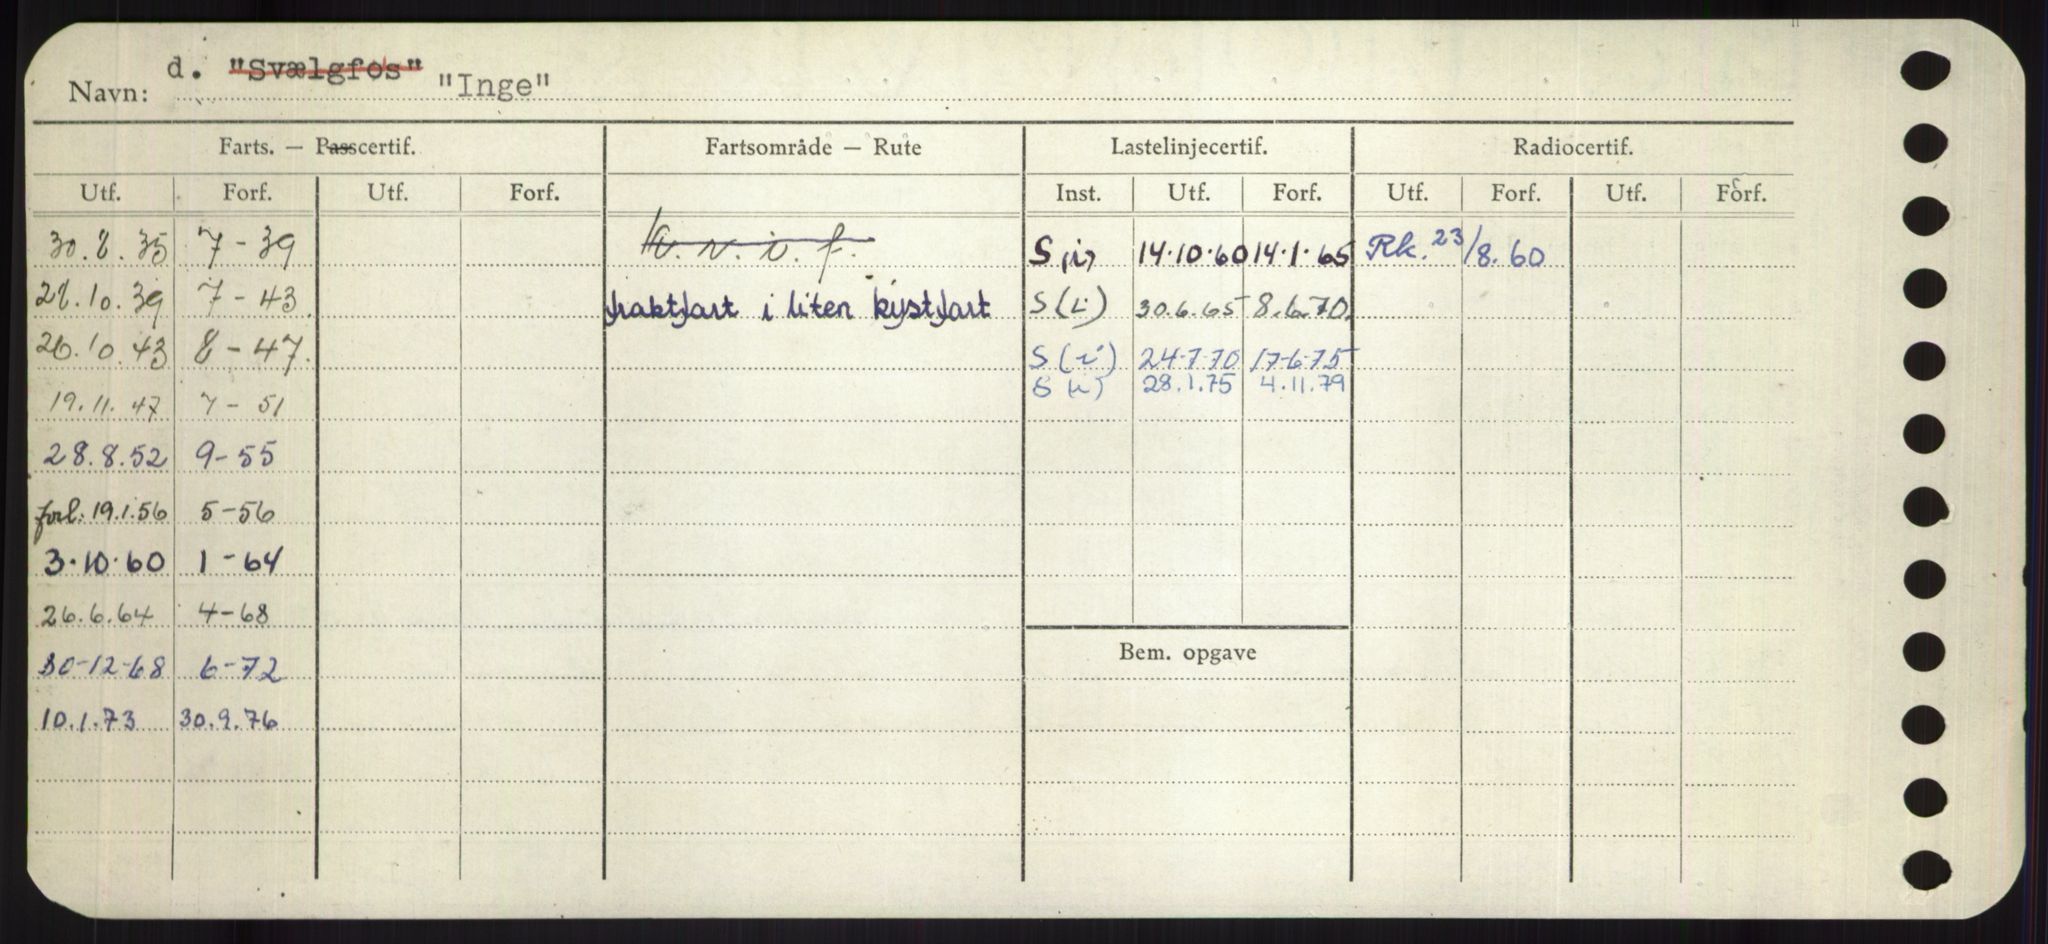 d. "Svælgfos"
Navn: "Inge"
Farts. — Passcertif. Fartsområde — Rute Lastelinjecertif. Radiocertif.
Utf. Forf. Utf. Forf. Inst. Utf. Forf. Utf. Forf. Utf. Forf.
30.8.35 7-39 S(i) 14.10.60 14.1.65 Rk. 23/8.60
28.10.39 7-43 fraktfart i liten kystfart S(i) 30.6.65 8.6.70.
26.10.43 8-47. S(i) 24-7-70 17-6-75
28.1.75 4.11.79
19.11.47 7-51
28.8.52 9-55
forl. 19.1.56 5-56
3.10.60 1-64
26.6.64 4-68
Bem. opgave
30-12-68 6-72
10.1.73 30.9.76